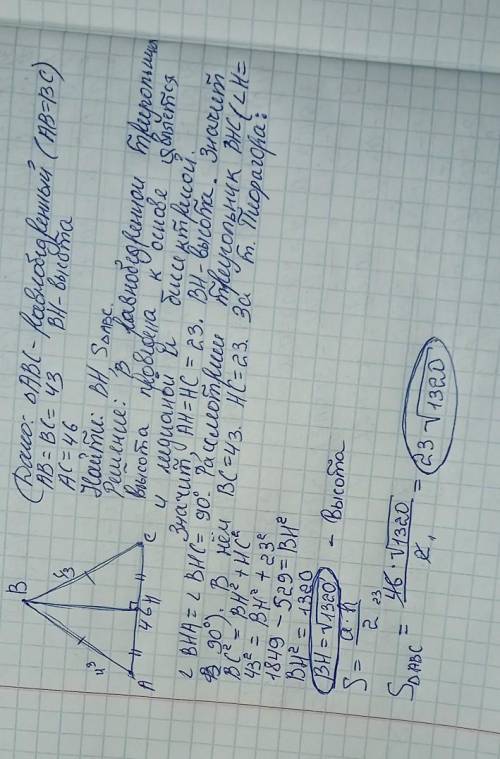 B
43
43
A
46
H
C
Дано: ΔABC - равнобедренный (AB=BC)
AB = BC = 43 BH - высота
AC = 46
Найти: BH S△ABC.
Решение: В равнобедренном треугольнике
высота проведена к основе является
и медианой и биссектрисой.
Значит, AH=HC = 23. BH - высота. Значит
∠BHA = ∠BHC = 90°. Рассмотрим треугольник BHC (∠H =
90°). В нём BC = 43. HC = 23. За т. Пифагора:
BC² = BH² + HC²
43² = BH² + 23²
1849 - 529 = BH²
BH² = 1320
BH = √1320 - Высота
S = a·h / 2
S△ABC = 46 · √1320 / 2 = 23√1320
23
1